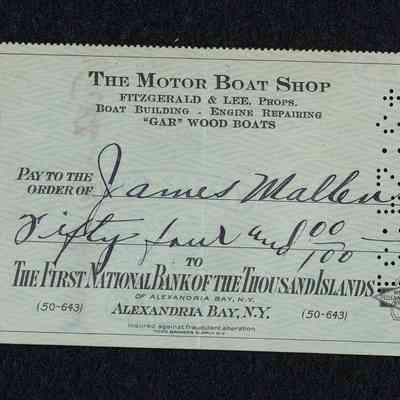 THE MOTOR BOAT SHOP
FITZGERALD & LEE, PROPS.
BOAT BUILDING - ENGINE REPAIRING
"GAR" WOOD BOATS
PAY TO THE
ORDER OF James Mallen
Fifty four and 00/100
TO
THE FIRST NATIONAL BANK OF THE THOUSAND ISLANDS
OF ALEXANDRIA BAY, N.Y.
(50-643) ALEXANDRIA BAY, N.Y. (50-643)
Insured against fraudulent alteration